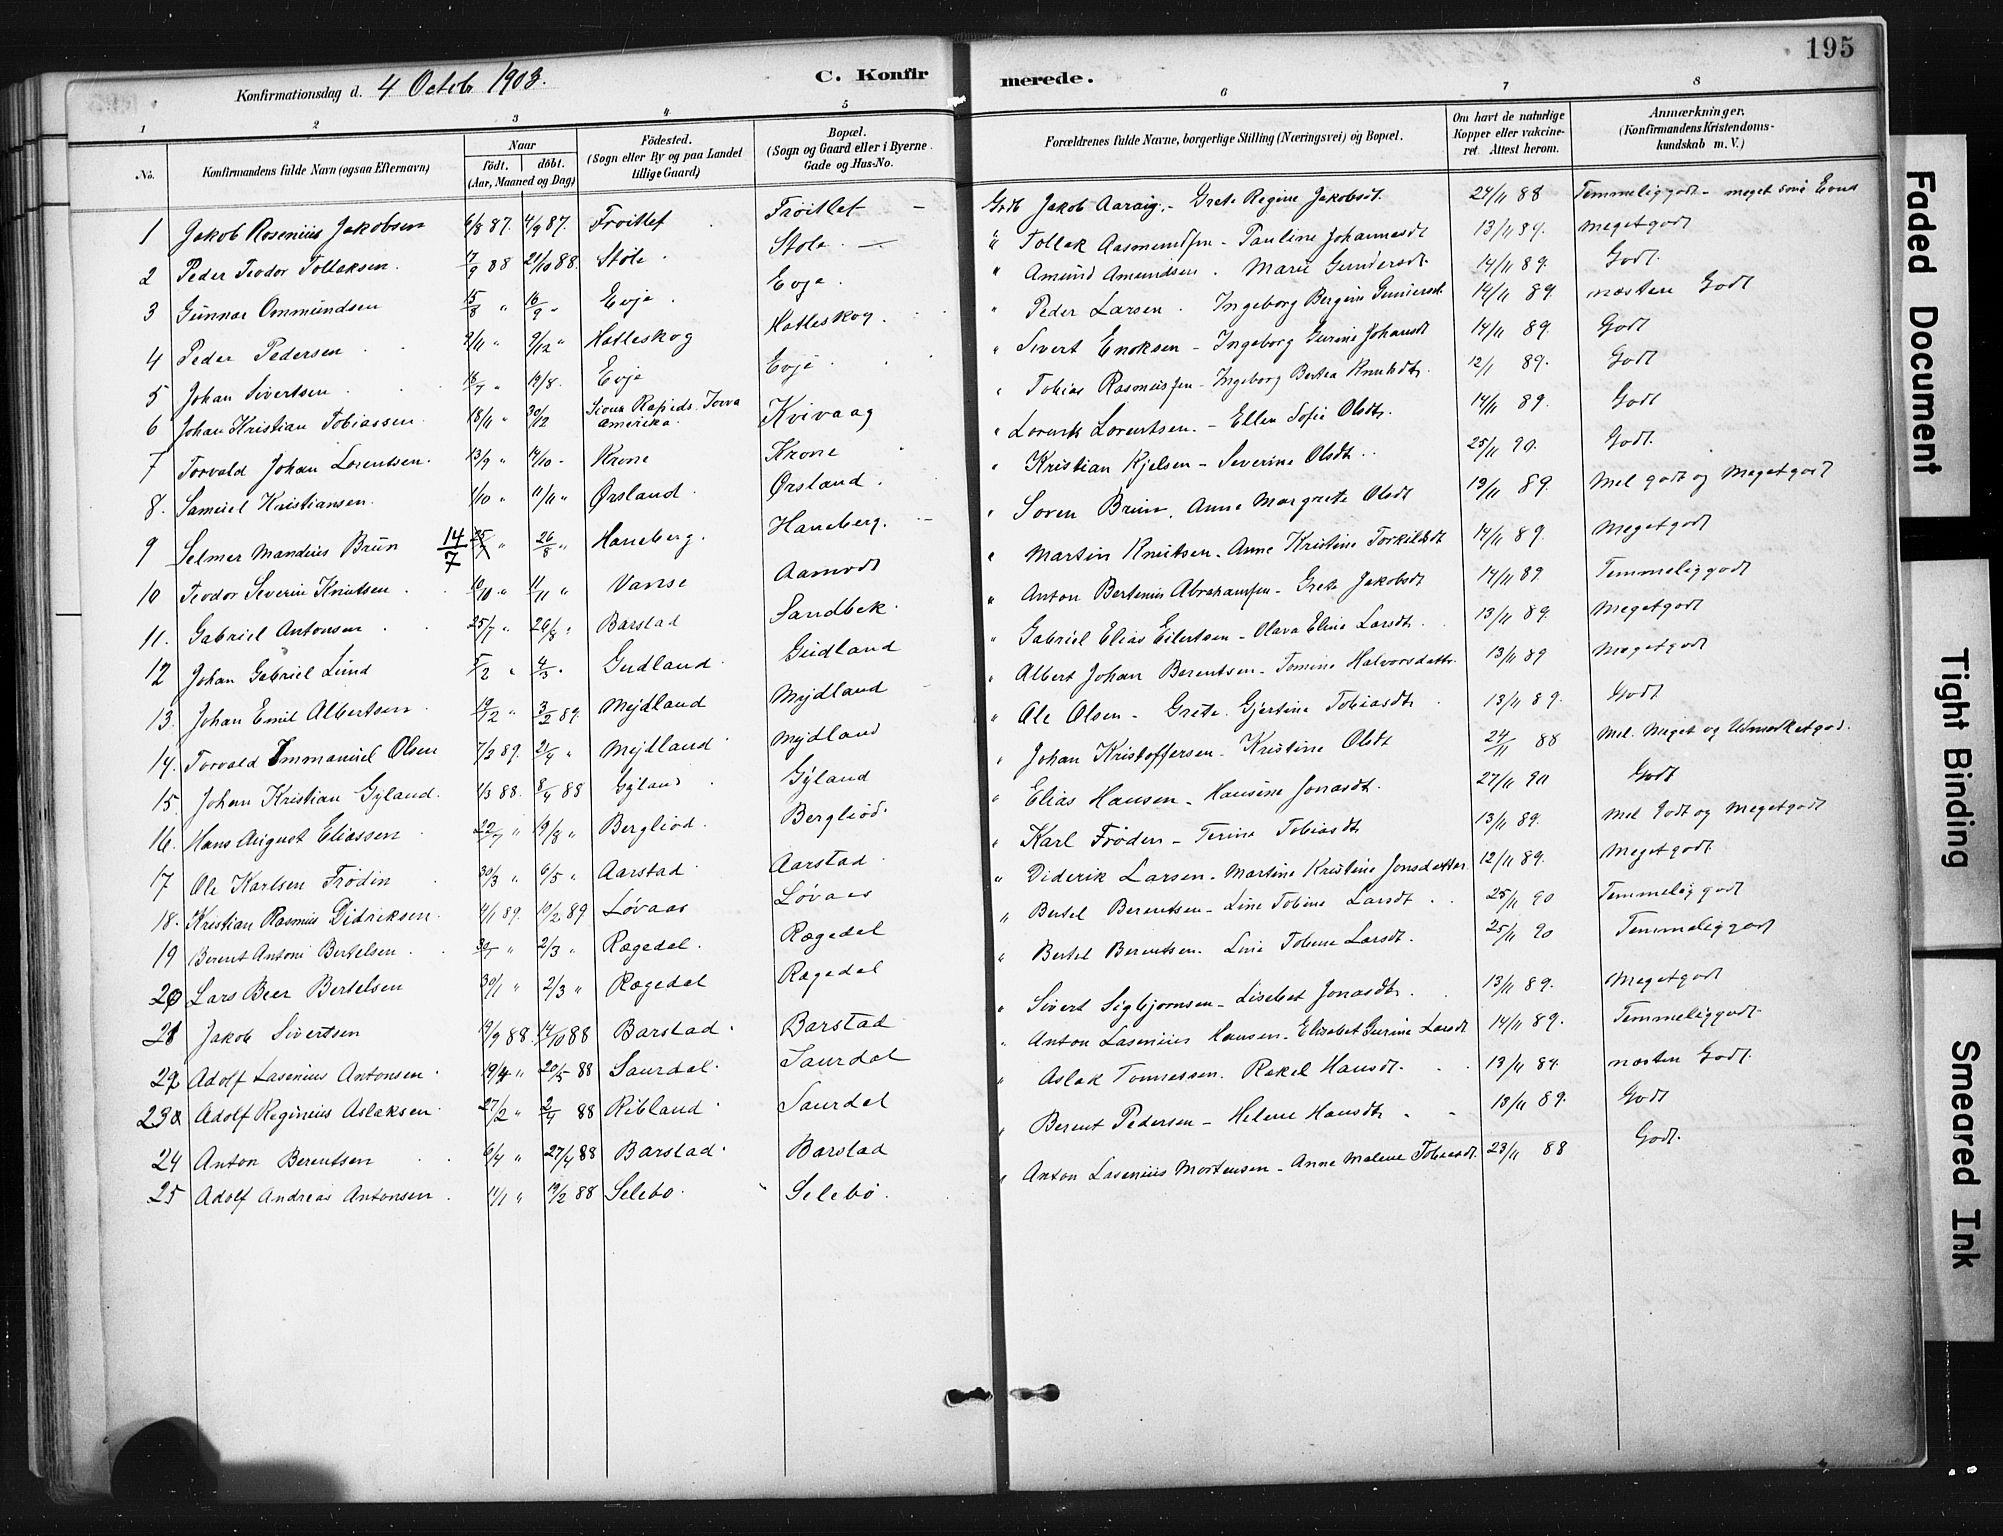 195
Konfirmationsdag d. 4 Octob 1903.
C. Konfirmerede.
1 2 3 4 5 6 7 8
No. Konfirmandens fulde Navn (ogsaa Efternavn) Naar født. døbt. (Aar, Maaned og Dag) Fødested. (Sogn eller By og paa Landet tillige Gaard) Bopæl. (Sogn og Gaard eller i Byerne Gade og Hus-No. Forældrenes fulde Navne, borgerlige Stilling (Næringsvei) og Bopæl. Om havt de naturlige Kopper eller vakcineret. Attest herom. Anmærkninger. (Konfirmandens Kristendomskundskab m. V.)
1 Jakob Rosenius Jakobsen 6/8 87. 4/9 87. Frøitlet Frøitlet Grdb Jakob Aaraig. - Grete Regine Jakobsdt. 24/11 88 Temmeliggodt - meget
2 Peder Teodor Tollaksen. 7/9 88 21/10 88. Støle Støle " Tollak Aasmundsen - Pauline Johannesdt 13/11 89. Megetgodt
3 Gunnar Ommundsen 15/8 " 16/9 " Evje. Evje. " Amund Amundsen. Marie Gundersdt. 14/11 89. Godt.
4 Peder Pedersen 2/11 " 9/12 " Hatleskog Hatleskog. " Peder Larsen. Ingeborg Bergine 14/11 89. næsten Godt
5 Johan Sivertsen 16/7 " 19/8. Evje Evje " Sivert Enoksen - Ingeborg Gurine Johansdt 14/11 89. Godt
6 Johan Kristian Tobiassen. 18/11 " 30/12 Sioux Rapids. Iowa amerika. Kvivaag " Tobias Rasmussen - Ingeborg Bertea Knuhdt. 12/1 89. Godt
7 Torvald Johan Lorentsen. 13/9 " 14/10 - Krone Krone " Lorents Lorentsen. - Ellen Sofie Olsdt. 14/11 89. Godt
8. Samuel Kristiansen. 1/10 " 11/11 " Ørsland. Ørsland. " Kristian Kjelsen - Severine Olsdt. 25/11 90. Godt.
9 Selmer Mandius Brun 14/7 " 26/8 " Haneberg. Haneberg. " Soren Brun, Anne Margrete Olsdt 19/11 89. Mel godt og Megetgodt
10 Teodor Severin Knutsen 10/10 " 11/11 " Vanse Aamodt " Martin Knutsen - Anne Kristine Torkildsdt 14/11 89. Megetgodt
11. Gabriel Antonsen 25/7 " 26/8 " Barstad Sandbek. " Anton Bertinius Abrahamsen - Grete Jakobsdt 14/11 89 Temmeliggodt
12 Johan Gabriel Lund 5/2 " 4/3 " Gudland Gudland " Gabriel Elias Eilertsen - Olava Eline Larsdt. 13/11 89. Megetgodt
13. Johan Emil Albertsen 19/12 " 3/2 89. Mydland Mydland " Albert Johan Berentsen - Tomine Halvorsdattr. 13/11 89 Megetgodt
14. Torvald Immanuel Olsen 7/2 89. 2/4 " Mydland Mydland " Ole Olsen - Grete. Gjertine Tobiasdt 13/11 89. Godt
15. Johan Kristian Gyland. 1/3 88. 8/4 88 Gyland Gyland " Johan Kristoffersen - Kristine Olsdt 24/11 88 Mel. Meget og Udmærketgod.
16. Hans August Eliassen 22/7 " 19/8 " Bergliod. Bergliod. " Elias Hansen - Hansine Jonasdt. 27/11 90 Godt
17 Ole Karlsen Frødin 30/3 " 6/5 " Aarstad. Aarstad. " Karl Frøden - Terine Tobiasdt 13/11 89. Mel Godt og Megetgodt
18. Kristian Rasmus Didriksen. 4/1 89. 10/2 89 Løvaas Løvaas " Diderik Larsen - Martine Kristine Jonsdatter 12/11 89. Megetgodt.
19 Berent Antoni Bertelsen 30/1 " 2/3 " Rægedal. Rægedal " Bertel Berentsen - Line Tobine Larsdt 25/11 90 Temmeliggodt
20 Lars Beer Bertelsen 30/1 " 2/3 " Rægedal Rægedal " Bertel Berentsen. Line Tobine Larsdt. 25/11 90 Temmeliggodt
21 Jakob Sivertsen 19/9 88. 14/10 88 Barstad. Barstad " Sivert Sigbjørnsen - Lisebet Jonasdt. 13/11 89. Megetgodt
22 Adolf Lasenius Antonsen. 19/4 " 20/5 88 Saurdal. Saurdal " Anton Lasenius Hansen. Elisabet Gurine Larsdt 14/11 89. Temmeliggodt.
23 Adolf Reginius Aslaksen. 27/2 " 2/4 88 Ribland Saurdal " Aslak Tonnessen. Rakel Hansdt. 13/11 89. næsten Godt.
24 Anton Berentsen 6/4 " 27/4 88 Barstad. Barstad " Berent Pedersen - Helene Hansdt. 13/11 89. Godt
25 Adolf Andreas Antonsen. 11/1 " 19/2 88 Selebo. Selebø. " Anton Lasenius Mortensen - Anne Malene Tobiasdt. 23/11 88 Godt.
Faded Document
Tight Binding
Smeared Ink